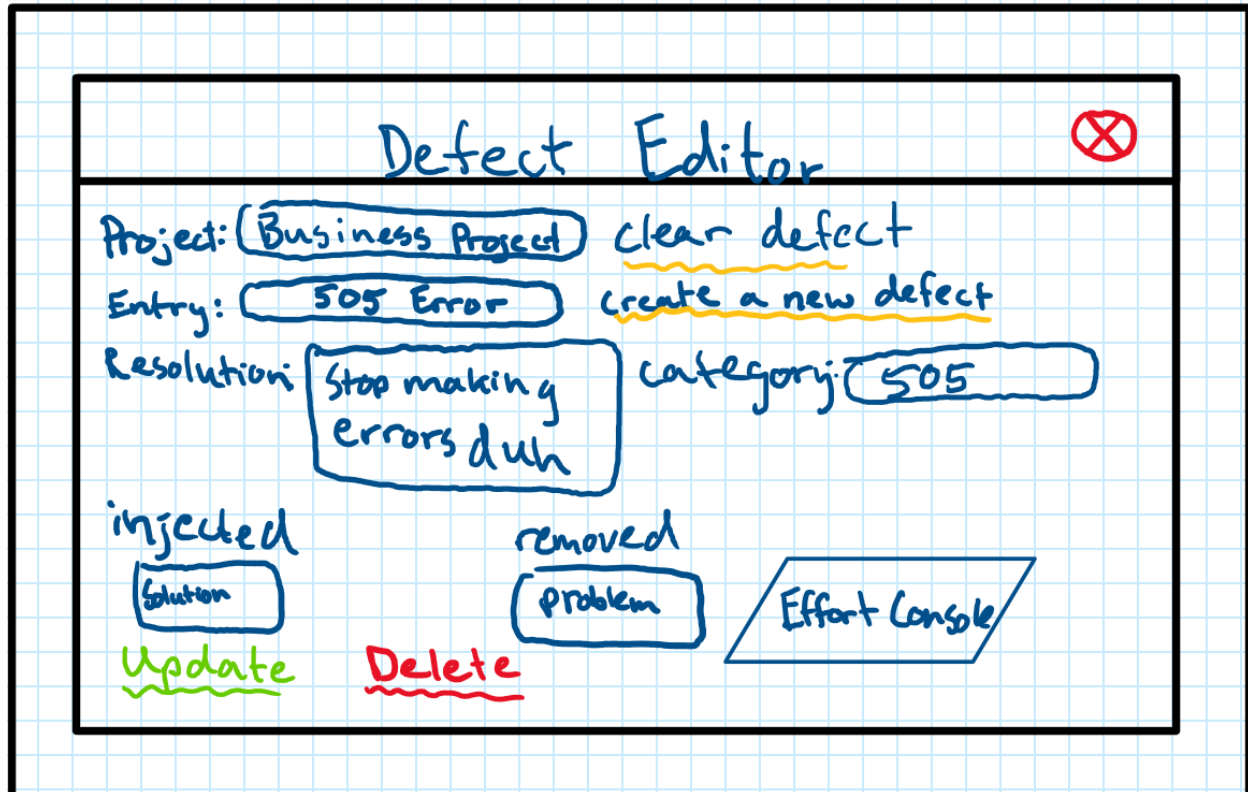 Defect Editor
Project: Business Project clear defect
Entry: 505 Error create a new defect
Resolution: Stop making category: 505
errors duh
injected removed
Solution problem Effort Console
Update Delete